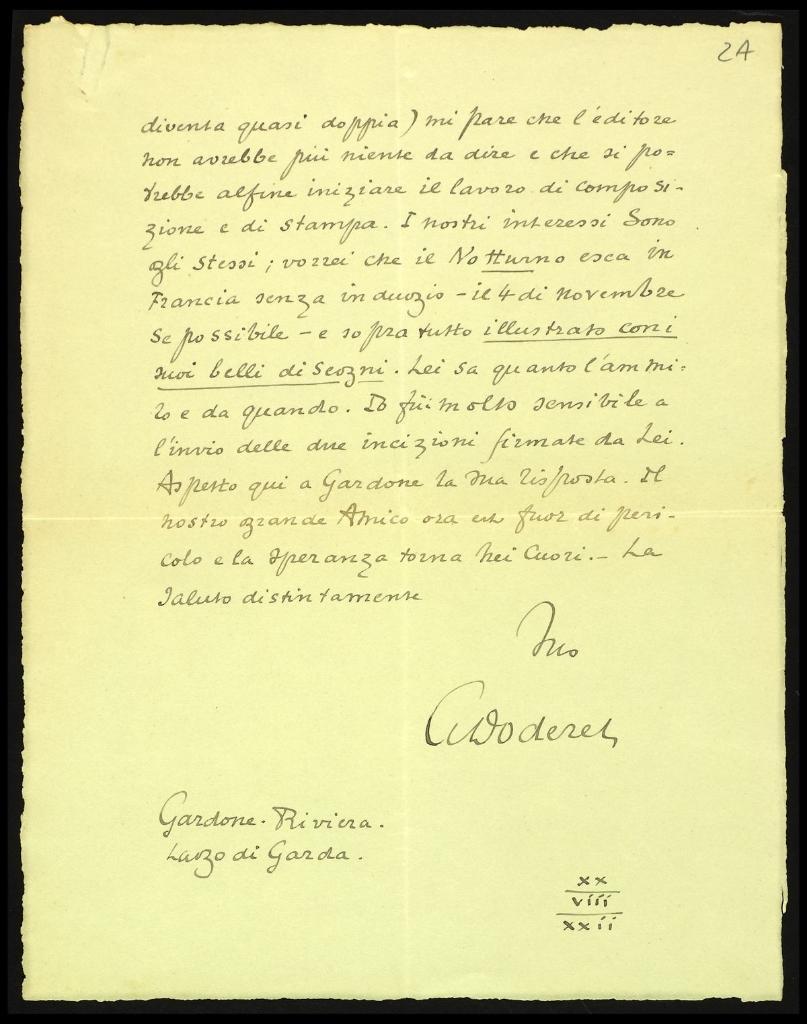 2A
diventa quasi doppia) mi pare che l'éditore
non avrebbe più niente da dire e che si po=
trebbe alfine iniziare il lavoro di composi-
zione e di stampa. I nostri interessi sono
gli stessi; vorrei che il Notturno esca in
Francia senza indugio - il 4 di novembre
se possibile - e sopratutto illustrato con i
suoi belli disegni. Lei sa quanto l'ammi-
ro e da quando. Io fui molto sensibile a
l'invio delle due incizioni firmate da Lei.
Aspetto qui a Gardone la sua risposta. Il
nostro grande Amico ora est fuor di peri-
colo e la speranza torna nei cuori. - La
saluto distintamente
Suo
Doderet
Gardone. Riviera.
Lago di Garda.
xx
viii
xxii